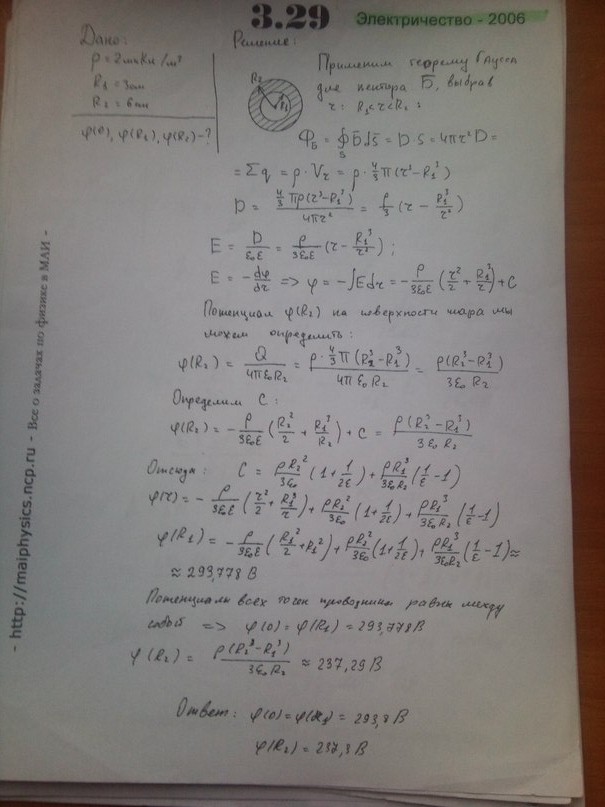 3.29
Электричество - 2006
Дано:
ρ = 2мкКл/м³
R₁ = 3см
R₂ = 6см
φ(0), φ(R₁), φ(R₂) - ?
Решение:
R₂
R₁
Применим теорему Гаусса
для вектора D̄, выбрав
r: R₁<r<R₂ :
Ф_D̄ = ∮_S D̄ dS̄ = D·S = 4πr²D =
= Σq = ρ·Vr = ρ·4/3 π(r³-R₁³)
D = (4/3 πρ(r³-R₁³))/(4πr²) = ρ/3 (r - R₁³/r²)
E = D/(ε₀ε) = ρ/(3ε₀ε) (r - R₁³/r²) ;
E = -dφ/dr => φ = -∫Edr = -ρ/(3ε₀ε) (r²/2 + R₁³/r) + C
Потенциал φ(R₂) на поверхности шара мы
можем определить:
φ(R₂) = Q/(4πε₀R₂) = (ρ·4/3 π(R₂³-R₁³))/(4πε₀R₂) = ρ(R₂³-R₁³)/(3ε₀R₂)
Определим C:
φ(R₂) = -ρ/(3ε₀ε) (R₂²/2 + R₁³/R₂) + C = ρ(R₂³-R₁³)/(3ε₀R₂)
Отсюда: C = ρR₂²/(3ε₀) (1 + 1/(2ε)) + ρR₁³/(3ε₀R₂) (1/ε - 1)
φ(r) = -ρ/(3ε₀ε) (r²/2 + R₁³/r) + ρR₂²/(3ε₀) (1 + 1/(2ε)) + ρR₁³/(3ε₀R₂) (1/ε - 1)
φ(R₁) = -ρ/(3ε₀ε) (R₁²/2 + R₁²) + ρR₂²/(3ε₀) (1 + 1/(2ε)) + ρR₁³/(3ε₀R₂) (1/ε - 1) ≈
≈ 293,778 В
Потенциалы всех точек проводника равны между
собой => φ(0) = φ(R₁) = 293,778 В
φ(R₂) = ρ(R₂³-R₁³)/(3ε₀R₂) ≈ 237,29 В
Ответ: φ(0) = φ(R₁) = 293,8 В
φ(R₂) = 237,3 В
- http://maiphysics.ncp.ru - Все о задачах по физике в МАИ -